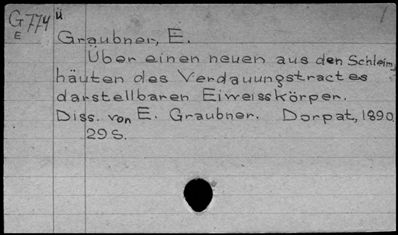 G774ü
E
Graubner, E.
Über einen neuen aus den Schleim
häuten des Verdauungstractes
darstellbaren Eiweisskörper.
Diss. von E. Graubner. Dorpat, 1890
29 S.